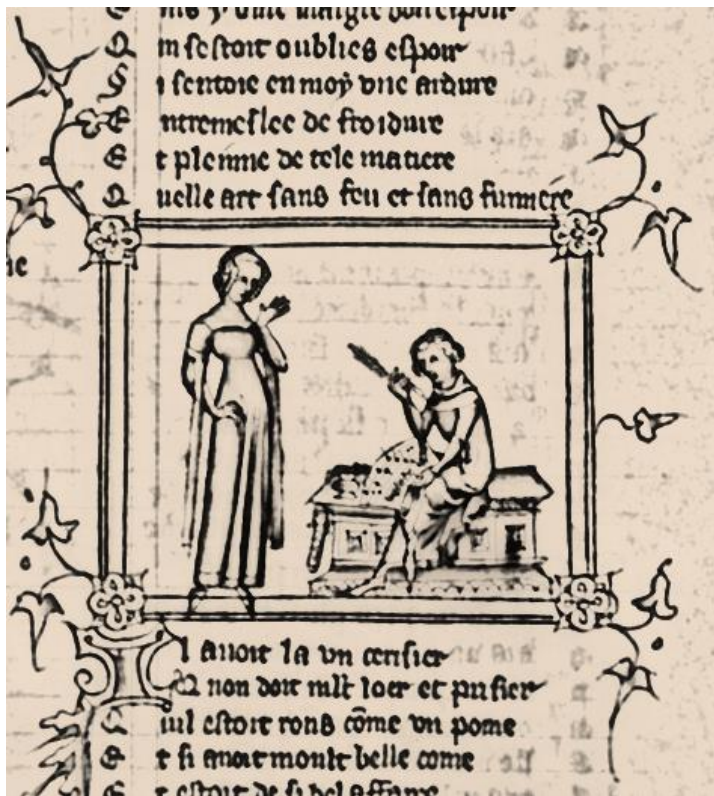 Q m sestoit oublies espoir
S i sentoie en moy une ardure
E ntremeslee de froidure
E t plenne de tele matiere
Q uelle art sans feu et sans fumiere
I l avoit la un cerisier
Q non doit mlt loer et prisier
Q uil estoit rons cōme un pome
E t si avoit moult belle come
E t estoit de si bel affaire